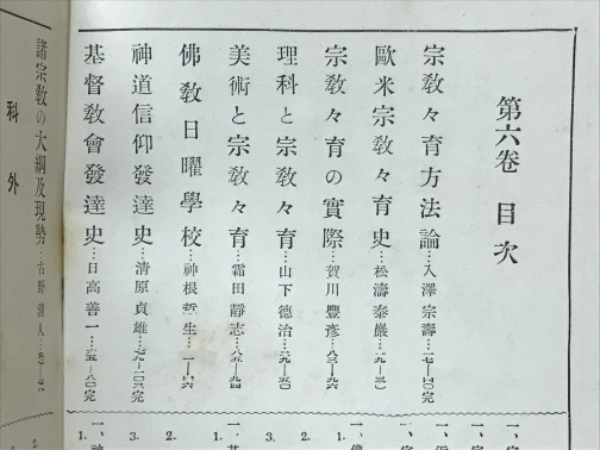 第六卷 目次
宗敎々育方法論…入澤宗壽…一七—四〇完
歐米宗敎々育史…松濤泰巖…一九—三〇
宗敎々育の實際…賀川豐彥…八三—九六
理科と宗敎々育…山下德治…三九—五〇
美術と宗敎々育…霜田靜志…八五—九四
佛敎日曜學校…神根悊生…一—六六
神道信仰發達史…淸原貞雄…七九—一〇六完
基督敎會發達史…日高善一…六五—八〇完
科外
諸宗敎の大綱及現勢…古野淸人